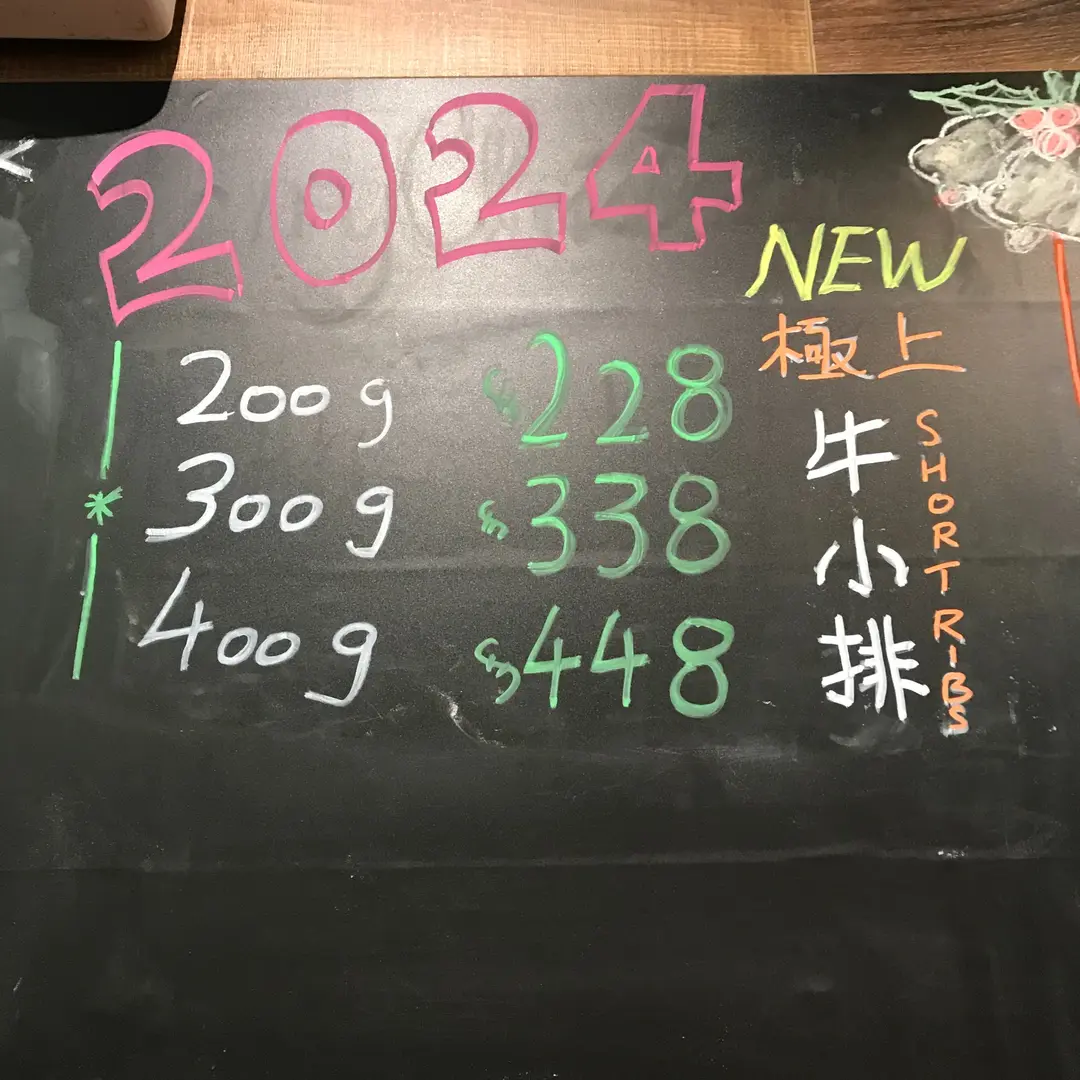 2024
200g $228
300g $338
400g $448
NEW
極上
牛小排
SHORT RIBS